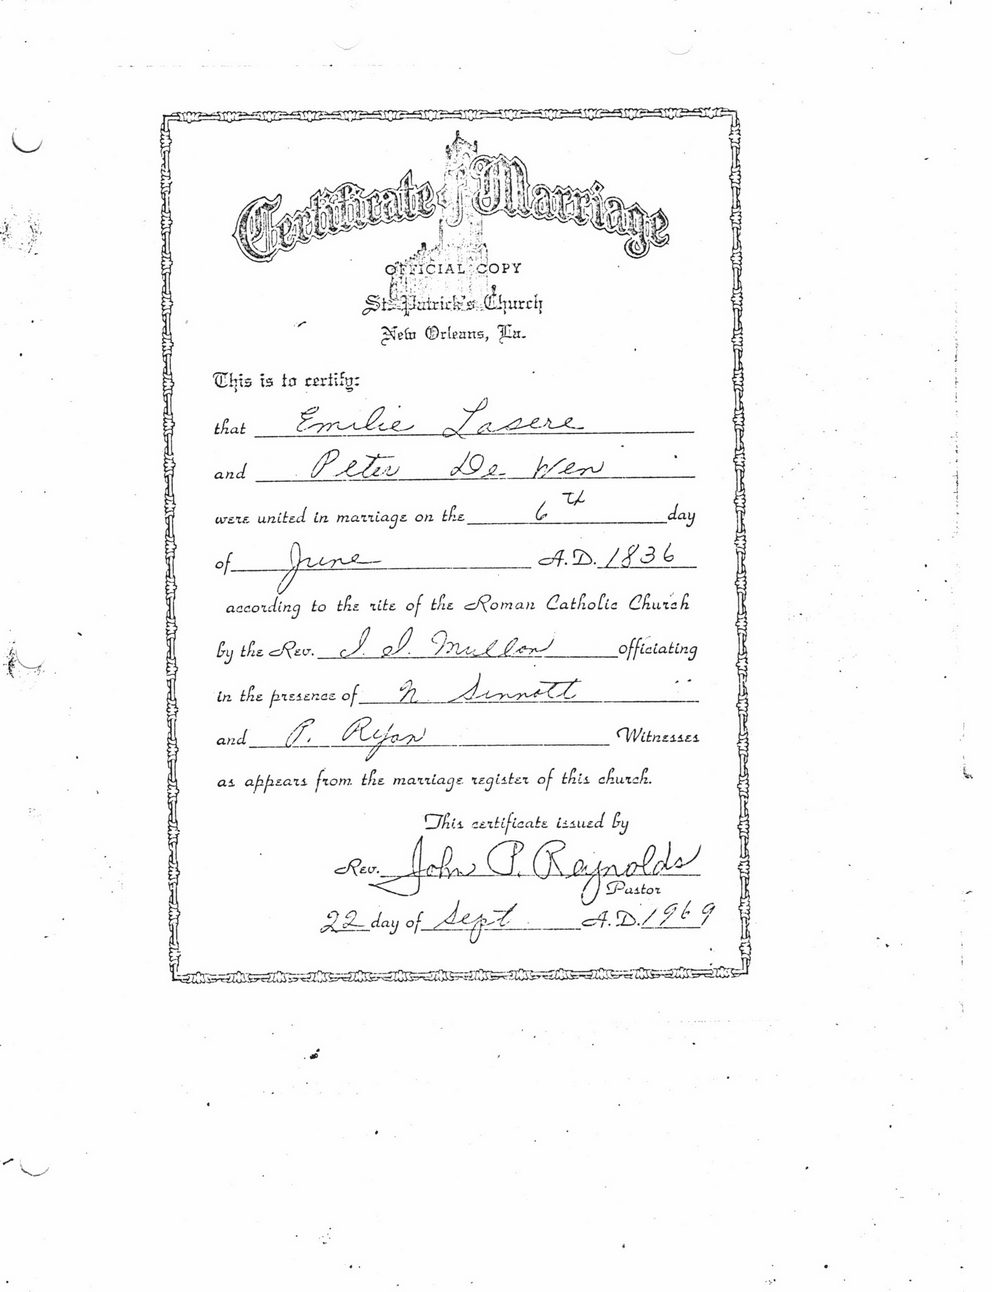 Certificate of Marriage
OFFICIAL COPY
St. Patrick's Church
New Orleans, La.
This is to certify:
that Emilie Lasere
and Peter De Wen
were united in marriage on the 6th day
of June A.D. 1836
according to the rite of the Roman Catholic Church
by the Rev. I. I. Mullon officiating
in the presence of N Sinnott
and P. Ryan Witnesses
as appears from the marriage register of this church.
This certificate issued by
Rev. John P. Reynolds
Pastor
22 day of Sept A.D. 1969